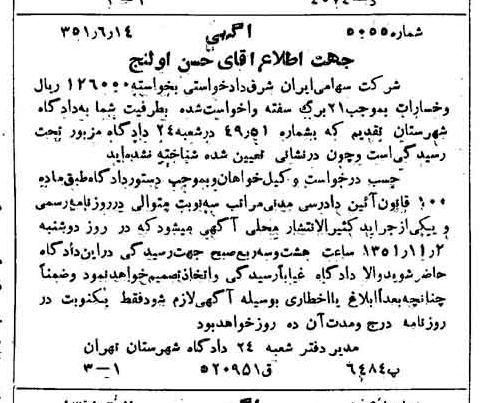 شماره ۵۰۵۵ آگهی ۳۵۱٫۶٫۱۴
جهت اطلاع آقای حسن اولنج
شرکت سهامی ایران شرق دادخواستی بخواسته ۱۲۶۰۰۰ ریال
و خسارات بموجب ۲۱ برگ سفته واخواست شده بطرفیت شما به دادگاه
شهرستان تقدیم که بشماره ۴۹٫۵۱ در شعبه ۲۴ دادگاه مزبور تحت
رسیدگی است و چون در نشانی تعیین شده شناخته نشده اید
حسب درخواست وکیل خواهان و بموجب دستور دادگاه طبق ماده
۱۰۰ قانون آئین دادرسی مدنی مراتب سه نوبت متوالی در روزنامه رسمی
و یکی از جراید کثیرالانتشار محلی آگهی میشود که در روز دوشنبه
۱۳۵۱٫۱۱٫۲ ساعت هشت و سه ربع صبح جهت رسیدگی در این دادگاه
حاضر شوید والا دادگاه غیاباً رسیدگی و اتخاذ تصمیم خواهد نمود و ضمناً
چنانچه بعداً ابلاغ یا اخطاری بوسیله آگهی لازم شود فقط یکنوبت در
روزنامه درج و مدت آن ده روز خواهد بود
مدیر دفتر شعبه ۲۴ دادگاه شهرستان تهران
پ ۶۴۸۴ ق ۵۲۰۹۵۱ ۳–۱